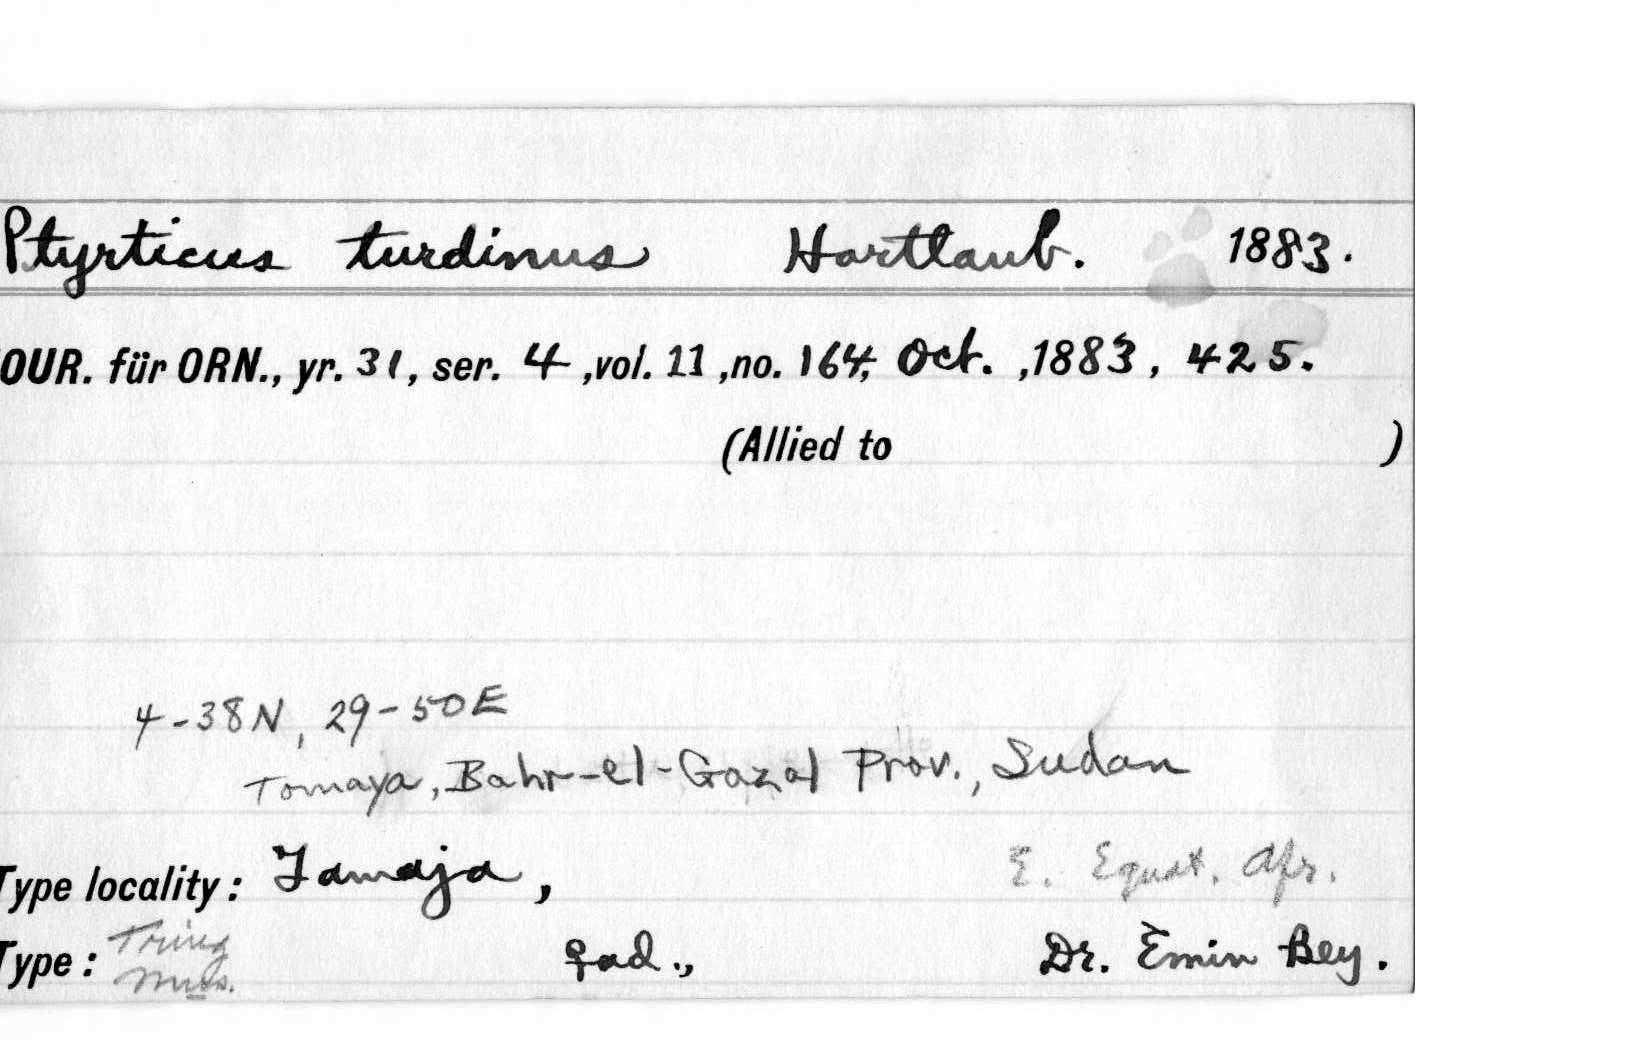 Ptyrticus turdinus Hartlaub. 1883.
OUR. für ORN., yr. 31, ser. 4 ,vol. 11 ,no. 164, Oct. ,1883, 425.
(Allied to )
4-38N, 29-50E
Tomaya, Bahr-el-Gazal Prov., Sudan
Type locality: Tamaja, E. Equat. Afr.
Type: Tring Mus. ♀ad., Dr. Emin Bey.